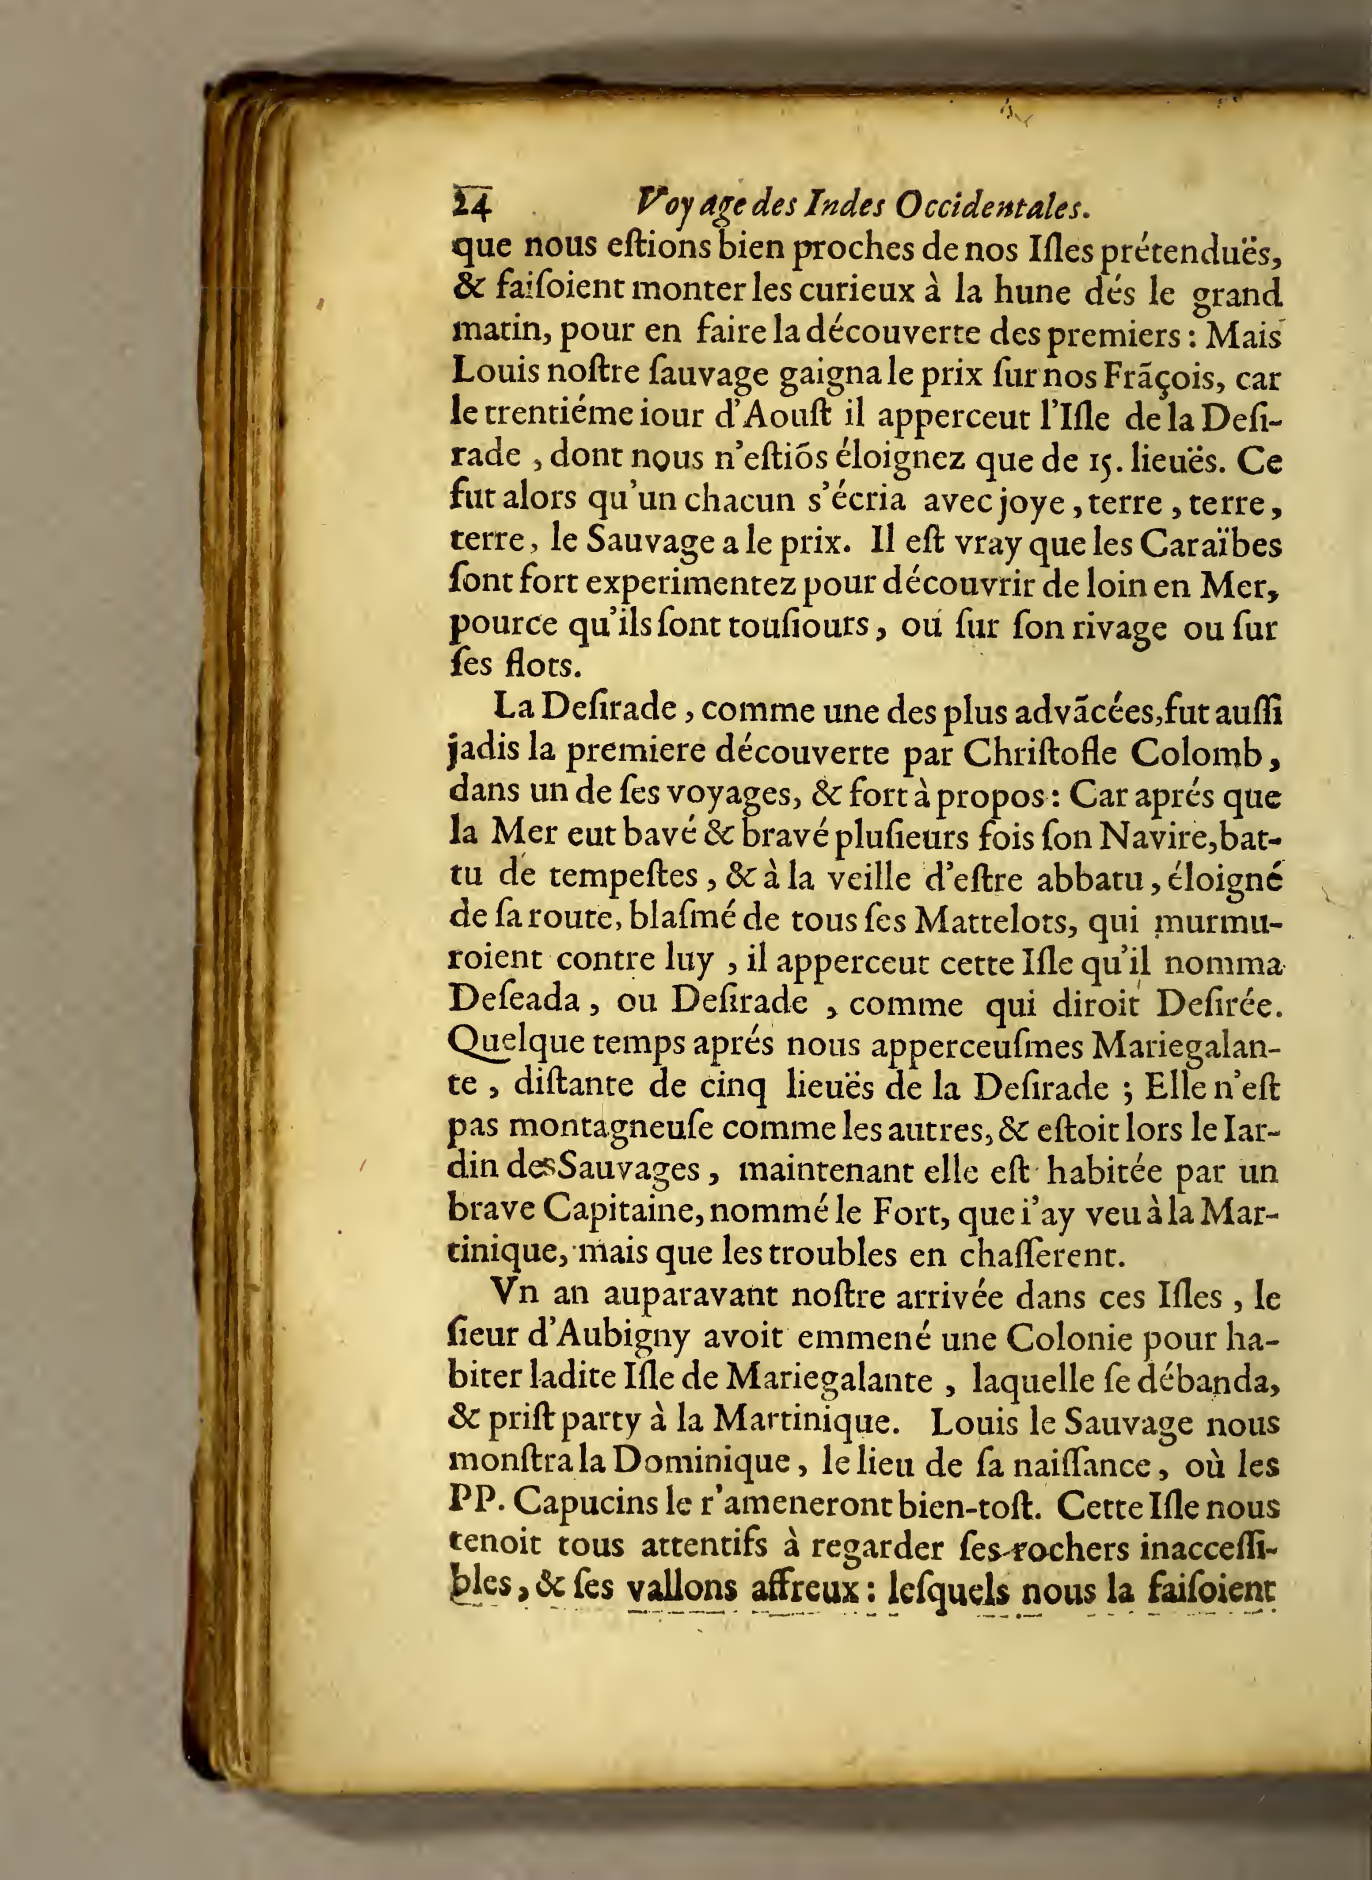 24 Voyage des Indes Occidentales.
que nous eſtions bien proches de nos Iſles prétenduës,
& faiſoient monter les curieux à la hune dés le grand
matin, pour en faire la découverte des premiers : Mais
Louis noſtre ſauvage gaigna le prix ſur nos Frãçois, car
le trentiéme iour d'Aouſt il apperceut l'Iſle de la Deſi-
rade , dont nous n'eſtiõs éloignez que de 15. lieuës. Ce
fut alors qu'un chacun s'écria avec joye , terre , terre ,
terre , le Sauvage a le prix. Il eſt vray que les Caraïbes
ſont fort experimentez pour découvrir de loin en Mer,
pource qu'ils ſont touſiours , ou ſur ſon rivage ou ſur
ſes flots.
La Deſirade , comme une des plus advãcées, fut auſſi
jadis la premiere découverte par Chriſtofle Colomb ,
dans un de ſes voyages, & fort à propos : Car aprés que
la Mer eut bavé & bravé pluſieurs fois ſon Navire, bat-
tu de tempeſtes , & à la veille d'eſtre abbatu , éloigné
de ſa route, blaſmé de tous ſes Mattelots, qui murmu-
roient contre luy , il apperceut cette Iſle qu'il nomma
Deſeada , ou Deſirade , comme qui diroit Deſirée.
Quelque temps aprés nous apperceuſmes Mariegalan-
te , diſtante de cinq lieuës de la Deſirade ; Elle n'eſt
pas montagneuſe comme les autres, & eſtoit lors le Iar-
din des Sauvages , maintenant elle eſt habitée par un
brave Capitaine, nommé le Fort, que i'ay veu à la Mar-
tinique, mais que les troubles en chaſſerent.
Vn an auparavant noſtre arrivée dans ces Iſles , le
ſieur d'Aubigny avoit emmené une Colonie pour ha-
biter ladite Iſle de Mariegalante , laquelle ſe débanda,
& priſt party à la Martinique. Louis le Sauvage nous
monſtra la Dominique , le lieu de ſa naiſſance , où les
PP. Capucins le r'ameneront bien-toſt. Cette Iſle nous
tenoit tous attentifs à regarder ſes rochers inacceſſi-
bles , & ſes vallons affreux : leſquels nous la faiſoient